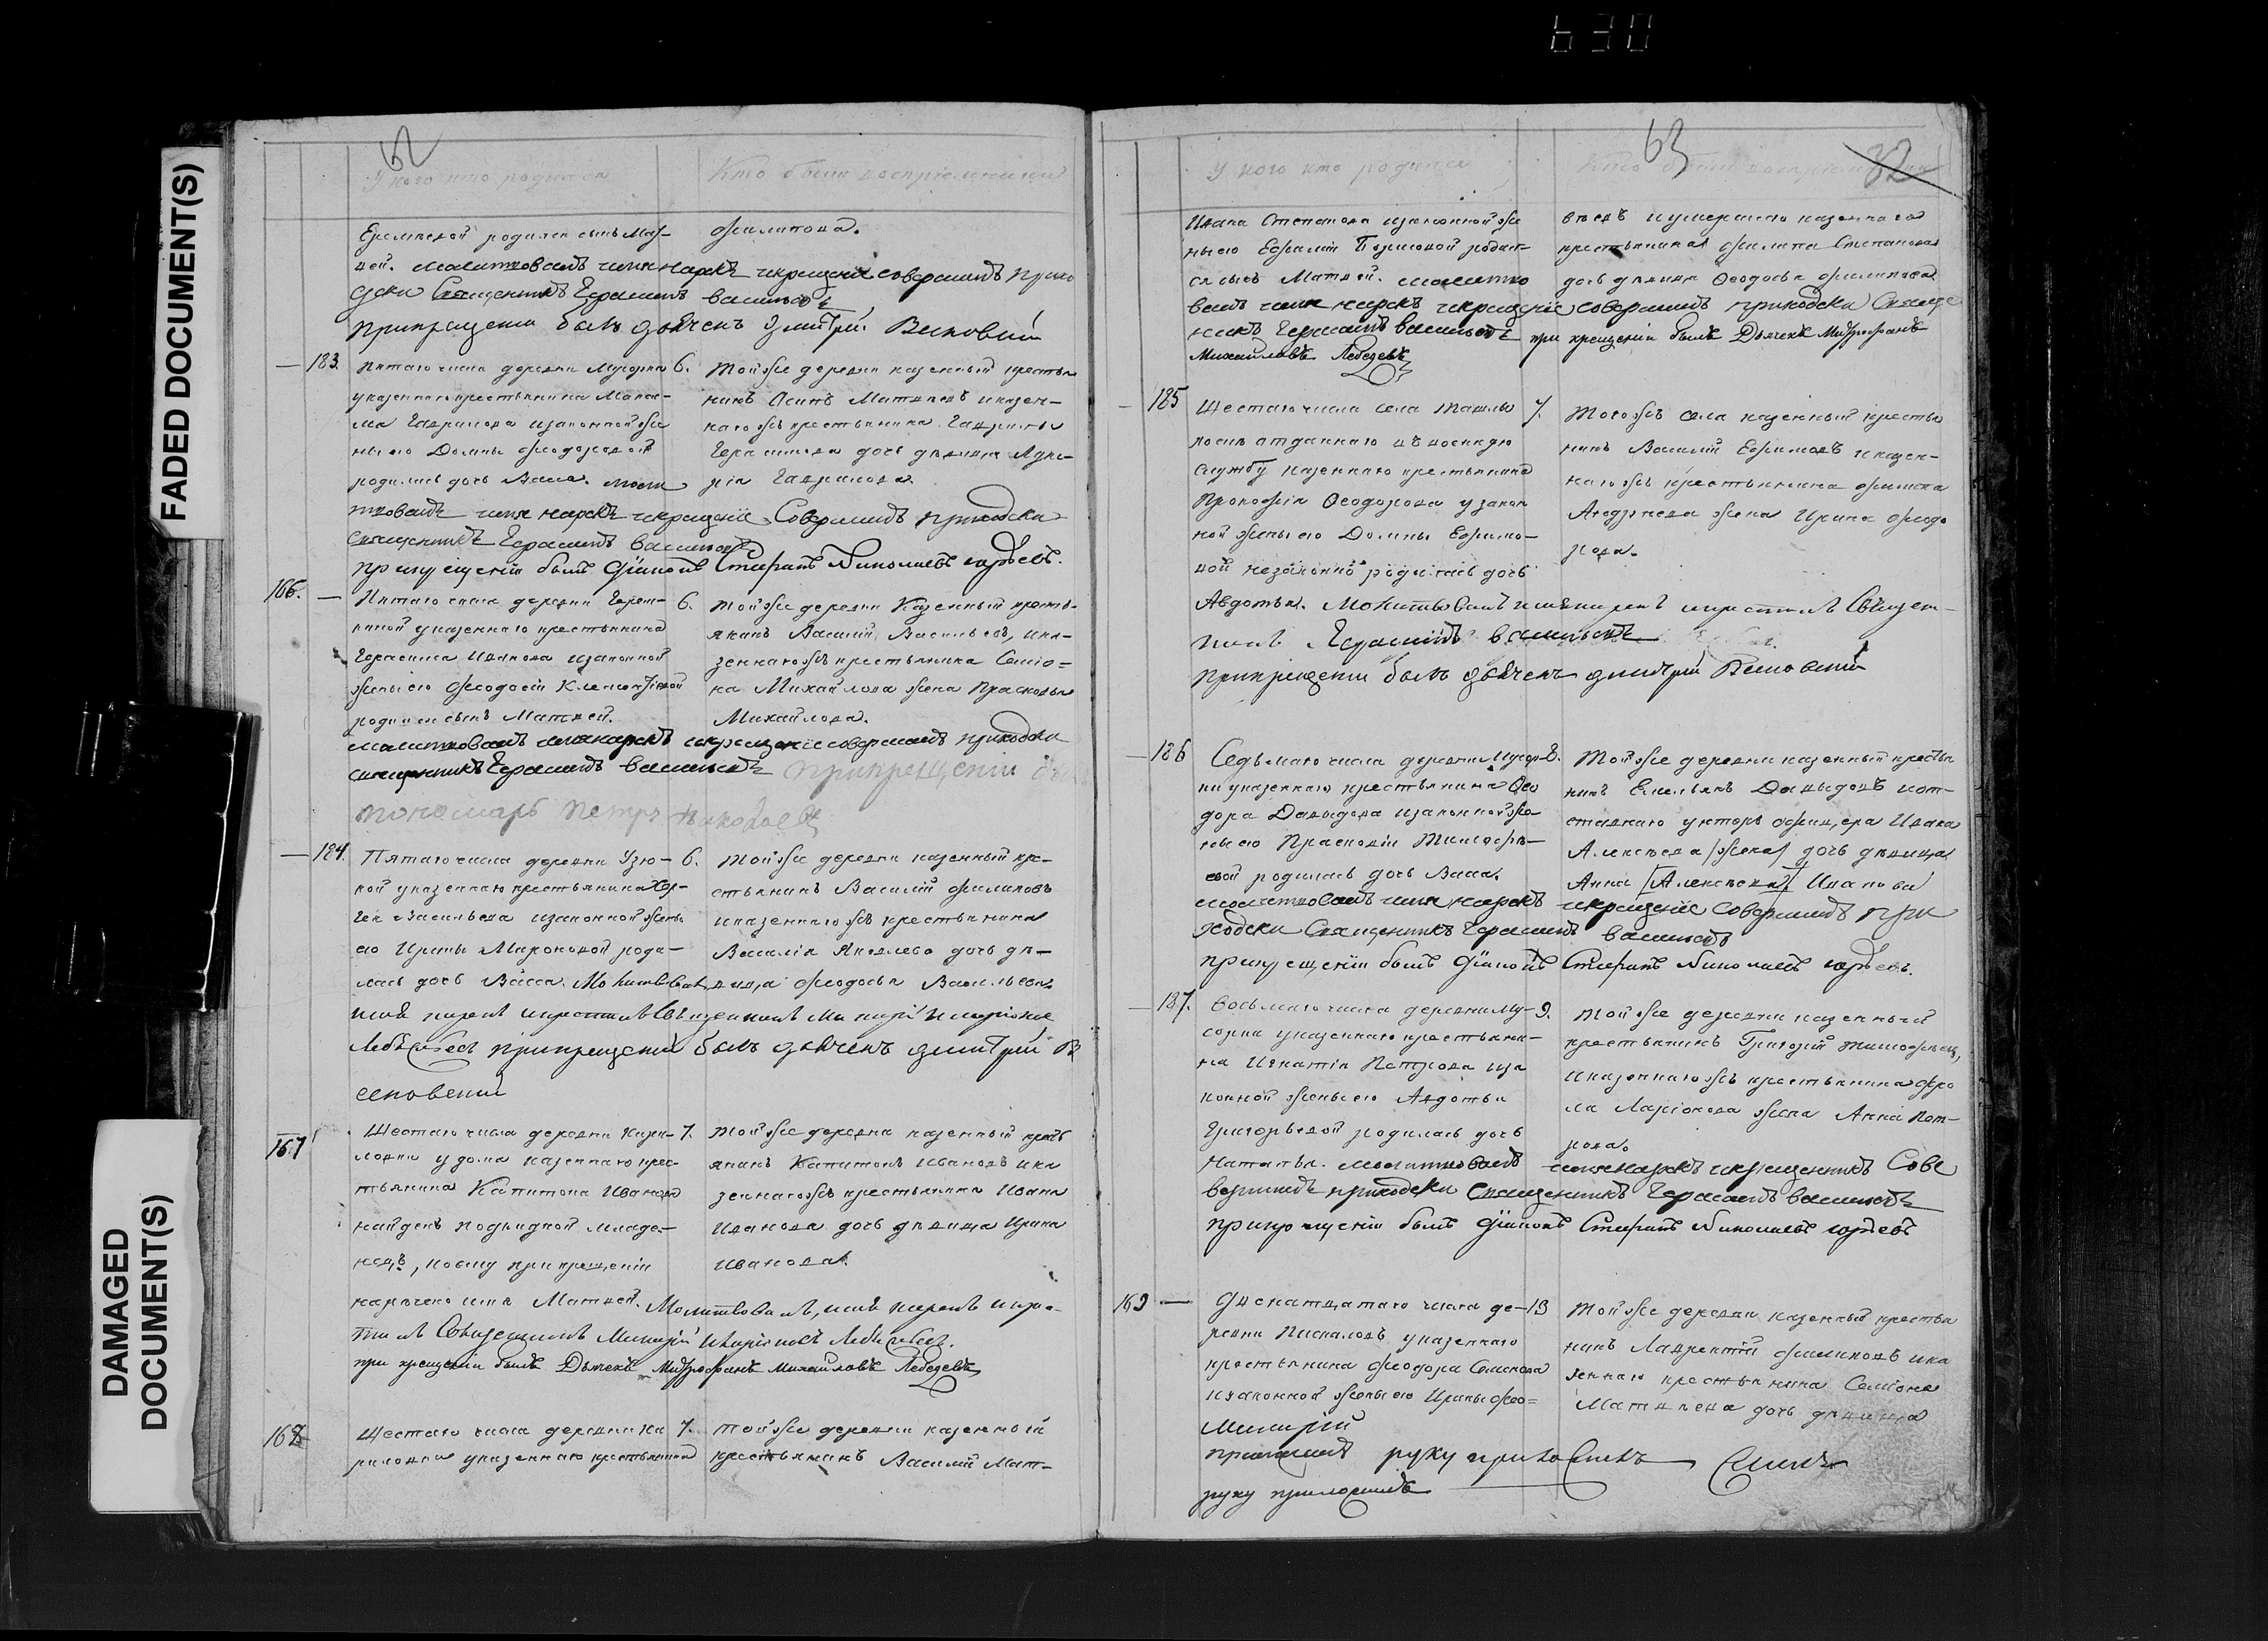 630
FADED DOCUMENT(S)
DAMAGED
DOCUMENT(S)
62
У кого кто родился
Кто были воспріемники
родился сынъ Мат-
вей. молитвовалъ имя нарекъ и крещение совершилъ прихо
дски Священникъ Герасимъ васильевъ
при крещении былъ дьячекъ Дмитрий Весновский
Филипова.
183.
Пятаго числа деревни Мусорки
у казеннаго крестьянина Макси-
ма Гаврилова и законной же
ны его Домны Феодоровой
родилась дочь Васса. моли
твовалъ имя нарекъ и крещение Совершилъ приходски
священникъ Герасимъ васильевъ
при крещении былъ Дiаконъ Стефанъ Николаевъ юрьевъ.
6.
Той же деревни казенный крестья
нинъ Осипъ Матвеевъ и казен-
наго жъ крестьянина Гаврилы
Герасимова дочь девица Луке-
рiя Гаврилова.
166.
Пятаго числа деревни Черем-
у казеннаго крестьянина
Герасима Иванова и законной
жены его Феодосiи Климентовой
родился сынъ Матвей.
молитвовалъ имя нарекъ и крещение совершилъ приходски
священникъ Герасимъ васильевъ при крещении былъ
пономарь Петръ Николаевъ
6.
той же деревни Казенный кресть-
янинъ Василий Васильевъ, и ка-
зеннаго жъ крестьянина Семiо-
на Михайлова жена Прасковья
Михайлова.
184.
Пятаго числа деревни Узю-
кой у казеннаго крестьянина Сер-
гея Васильева и законной жены
его Ирины Мироновой роди-
лась дочь Васса. Молитвовалъ,
имя нарекъ и крестилъ Священникъ Миларiй Иларiоновъ
Лебедевъ при крещении былъ дьячекъ Дмитрий В
есновский
6.
той же деревни казенный кре-
стьянинъ Василий Филиповъ
и казеннаго жъ крестьянина
Василiя Яковлева дочь де-
вица Феодосья Васильева.
167
Шестаго числа деревни Кири-
ловки у дома казеннаго крес-
тьянина Капитона Иванова
найденъ подкидной младе-
нецъ, коему при крещенiи
наречено имя Матвей. Молитвовалъ, имя нарекъ и крес-
тилъ Священникъ Миларiй Иларiоновъ Лебедевъ.
при крещении былъ Дьячекъ Митрофанъ Михайловъ Лебедевъ
7.
той же деревни казенный крест
янинъ Капитонъ Ивановъ и ка
зеннаго жъ крестьянина Ивана
Иванова дочь девица Ирина
Иванова.
168
Шестаго числа деревни Ки
риловки у казеннаго крестьянина
7.
той же деревни казенный
крестьянинъ Василий Мат-
63
32
У кого кто родился
Кто были воспріемники
Ивана Степанова и законной же
ны его Ефимiи Борисовой родил-
ся сынъ Матвей. молитво
валъ имя нарекъ и крещение совершилъ приходски Свяще
никъ Герасимъ васильевъ при крещенiи былъ Дьячекъ Митрофанъ
Михайловъ Лебедевъ
веевъ и умершаго казеннаго
крестьянина Филипа Степанова
дочь девица Феодосья Филипова.
185
Шестаго числа села Ташлы
после отданнаго въ военную
службу казеннаго крестьянина
Прокофiя Феодорова у закон
ной жены его Домны Ефимо-
вой незаконно родилась дочь
Авдотья. Молитвовалъ имя нарекъ и крестилъ Священ-
никъ Герасимъ васильевъ
при крещении былъ дьячекъ дмитрий Весновский
7.
Того жъ села казенный крестья
нинъ Василий Ефимовъ и казен-
наго жъ крестьянина Филипа
Андреева жена Ирина Феодо
рова.
186
Седьмаго числа деревни Мусор-
ки у казеннаго крестьянина Фео
дора Давыдова и законной же
ны его Прасковiи Тимофе-
евой родилась дочь Васса.
молитвовалъ имя нарекъ и крещение совершилъ при
ходски Священникъ Герасимъ васильевъ
при крещенiи былъ Дiаконъ Стефанъ Николаевъ юрьевъ.
8.
Той же деревни казенный крестья
нинъ Емельянъ Давыдовъ и от-
ставнаго унторъ офицера Ивана
Алексеева /жена/ дочь девица
Анна [Алексеева] Иванова
187.
Восьмаго числа деревни Му-
сорки у казеннаго крестьяни-
на Игнатiя Петрова и за
конной жены его Авдотьи
Григорьевой родилась дочь
Наталья. молитвовалъ имя нарекъ и крещенникъ Сове
вершилъ приходски Священникъ Герасимъ васильевъ
при крещенiи былъ Дiаконъ Стефанъ Николаевъ юрьевъ
9.
Той же деревни казенный
крестьянинъ Григорий Тимофеевъ,
и казеннаго жъ крестьянина Фро
ла Ларiонова жена Анна Пет-
рова.
169
Двенатцатаго числа де-
ревни Пискаловъ у казеннаго
крестьянина Феодора Семенова
и законной жены его Ирины Фео-
13
Той же деревни казенный крестья
нинъ Лаврентiй Филиповъ и ка
зеннаго крестьянина Семiона
Матвеева дочь девица
Миларiй
приложилъ руку
руку приложилъ